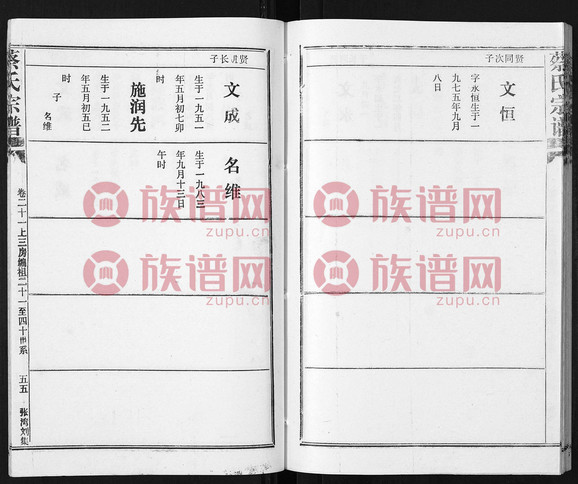 蔡氏宗谱
子次同贤
文恒
字永恒生于一
九七五年九月
八日
子长明贤
文成
生于一九五一
年五月初七卯
时
施润先
生于一九五二
年五月初五巳
时
子
名维
名维
生于一九八三
年九月十三日
午时
蔡氏宗谱
卷二十一上三房繼祖二十一至四十世系
五五
张湾刘集
族谱网
zupu.cn
族谱网
zupu.cn
族谱网
zupu.cn
族谱网
zupu.cn